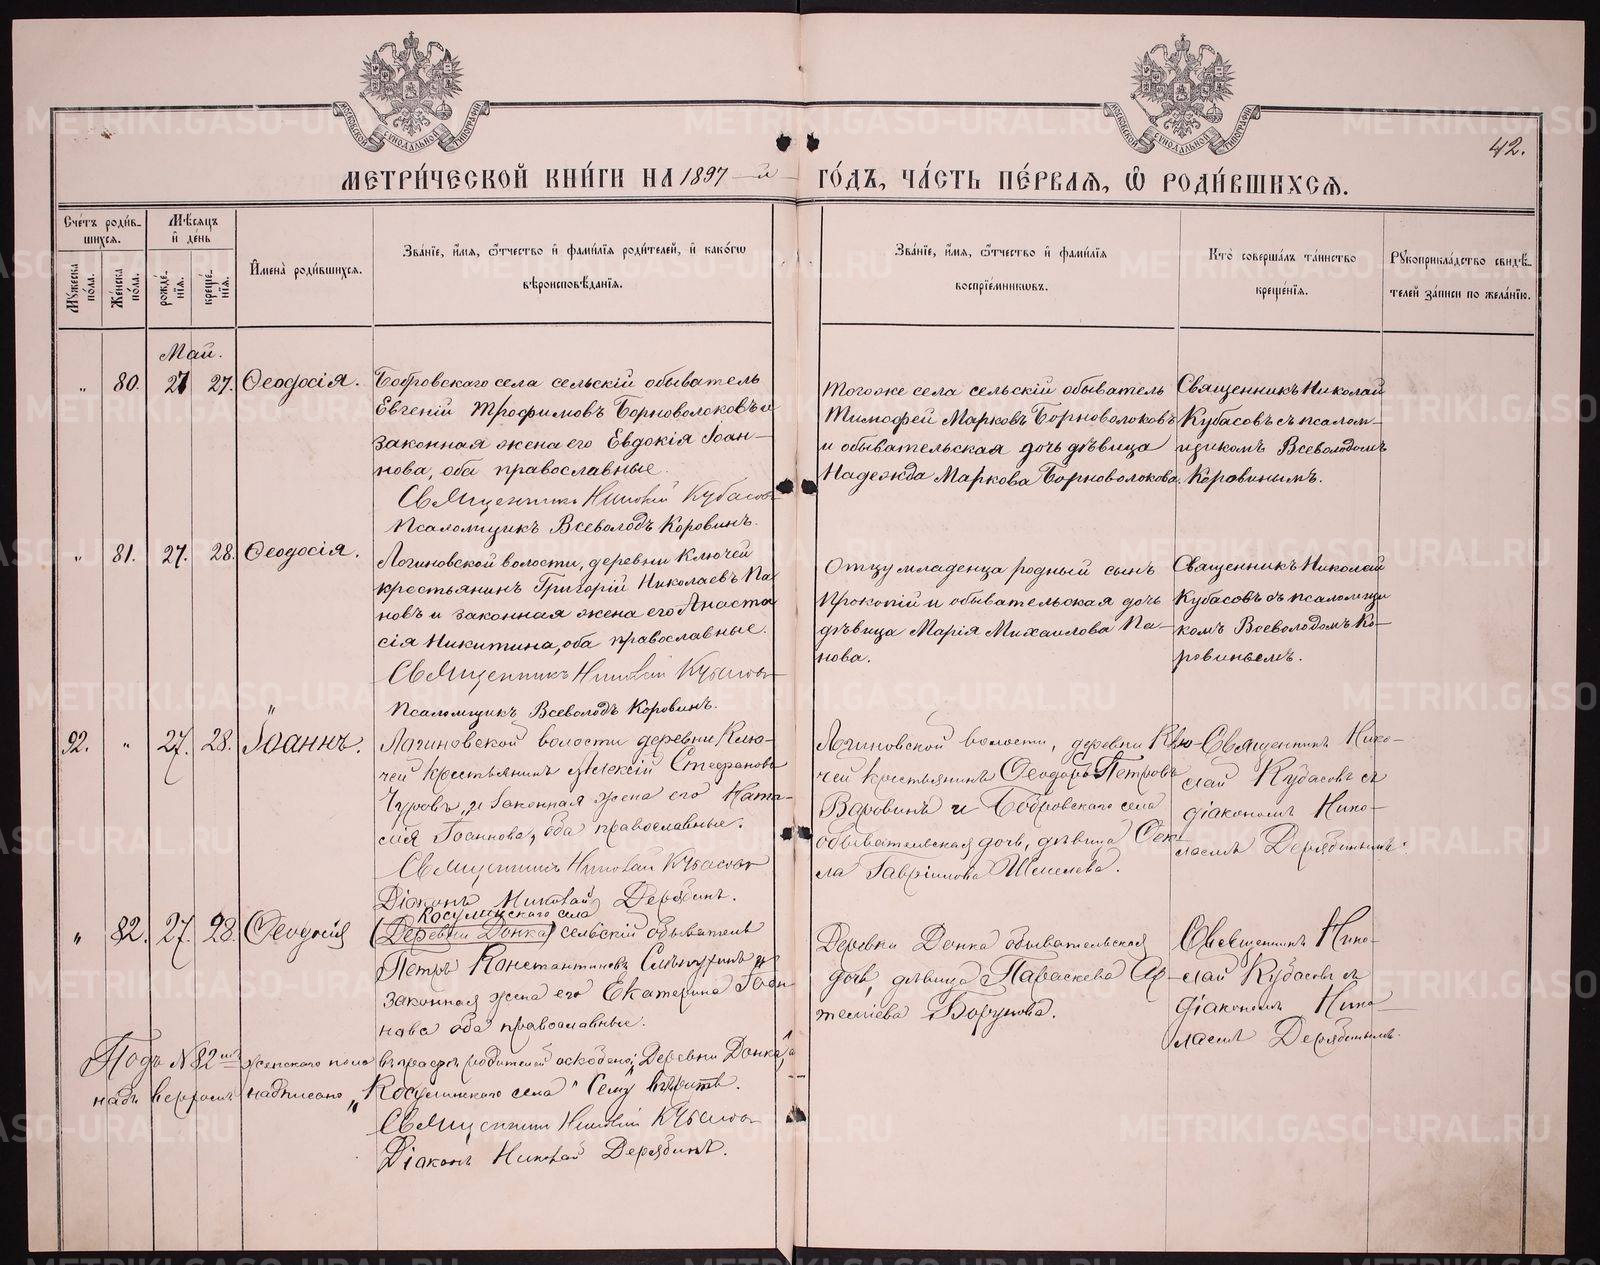 МОСКОВСКОЙ СѴНОДАЛЬНОЙ ТИПОГРАФІИ
МОСКОВСКОЙ СѴНОДАЛЬНОЙ ТИПОГРАФІИ
42.
МЕТРИ́ЧЕСКОЙ КНИ́ГИ НА 1897-й ГО́ДЪ, ЧА́СТЬ ПЕ́РВАЯ, Ѽ РОДИ́ВШИХСЯ.
Сче́тъ роди́в-
шихся.
Му́жеска по́ла.
Же́нска по́ла.
Мѣ́сяцъ
и҆ де́нь
рожде́-
нїя.
креще́-
нїя.
И҆мена̀ роди́вшихся.
Зва́нїе, и҆́мя, ѻ҆́тчество и҆ фами́лїя роди́телей, и҆ како́гѡ
вѣроисповѣ́данїя.
Зва́нїе, и҆́мя, ѻ҆́тчество и҆ фами́лїя
воспрїе́мникѡвъ.
Кто̀ соверша́лъ та́инство
креще́нїя.
Рꙋкоприкла́дство свидѣ́-
телей за́писи по жела́нїю.
Май.
„ 80. 27 27. Ѳеодосія.
Бобровскаго села сельскій обыватель
Евгеній Трофимовъ Борноволоковъ и
законная жена его Евдокія Іоан-
нова, оба православные.
Священникъ Николай Кубасовъ
Псаломщикъ Всеволодъ Коровинъ.
Тогоже села сельскій обыватель
Тимофей Марковъ Борноволоковъ
и обывательская дочь дѣвица
Надежда Маркова Борноволокова.
Священникъ Николай
Кубасовъ съ псалом-
щикомъ Всеволодомъ
Коровинымъ.
„ 81. 27. 28. Ѳеодосія.
Логиновской волости, деревни Ключей
крестьянинъ Григорій Николаевъ Па-
новъ и законная жена его Анаста
сія Никитина, оба православные.
Священникъ Николай Кубасовъ
Псаломщикъ Всеволодъ Коровинъ.
Отцу младенца родный сынъ
Прокопій и обывательская дочь
дѣвица Марія Михаилова Па-
нова.
Священникъ Николай
Кубасовъ съ псаломщи
комъ Всеволодомъ Ко-
ровинымъ.
92. „ 27. 28. Іоаннъ.
Логиновской волости деревни Клю-
чей крестьянинъ Алексій Стефановъ
Чуровъ и законная жена его Ната-
лія Іоаннова, оба православные.
Священникъ Николай Кубасовъ
Діаконъ Николай Дерябинъ.
Логиновской волости, деревни Клю-
чей крестьянинъ Ѳеодоръ Петровъ
и Бобровскаго села
обывательская дочь, дѣвица Ѳек
ла Гавріилова
Священникъ Нико-
лай Кубасовъ съ
діакономъ Нико-
лаемъ Дерябинымъ.
„ 82. 27. 28. Ѳеодосія
Косулинскаго села
(Деревни Донка) сельскій обыватель
Петръ Константиновъ и
законная жена его Екатерина Іоан
нова оба православные.
Деревни Донка обывательская
дочь, дѣвица Параскева Ар-
теміева Борунова.
Священникъ Нико-
лай Кубасовъ съ
діакономъ Нико
лаемъ Дерябинымъ.
Подъ № 82мъ женскаго пола въ графѣ родителей оскоблено „Деревни Донка", а
надъ верхомъ надписано „Косулинскаго села" Сему вѣрить.
Священникъ Николай Кубасовъ
Діаконъ Николай Дерябинъ.
METRIKI.GASO-URAL.RU